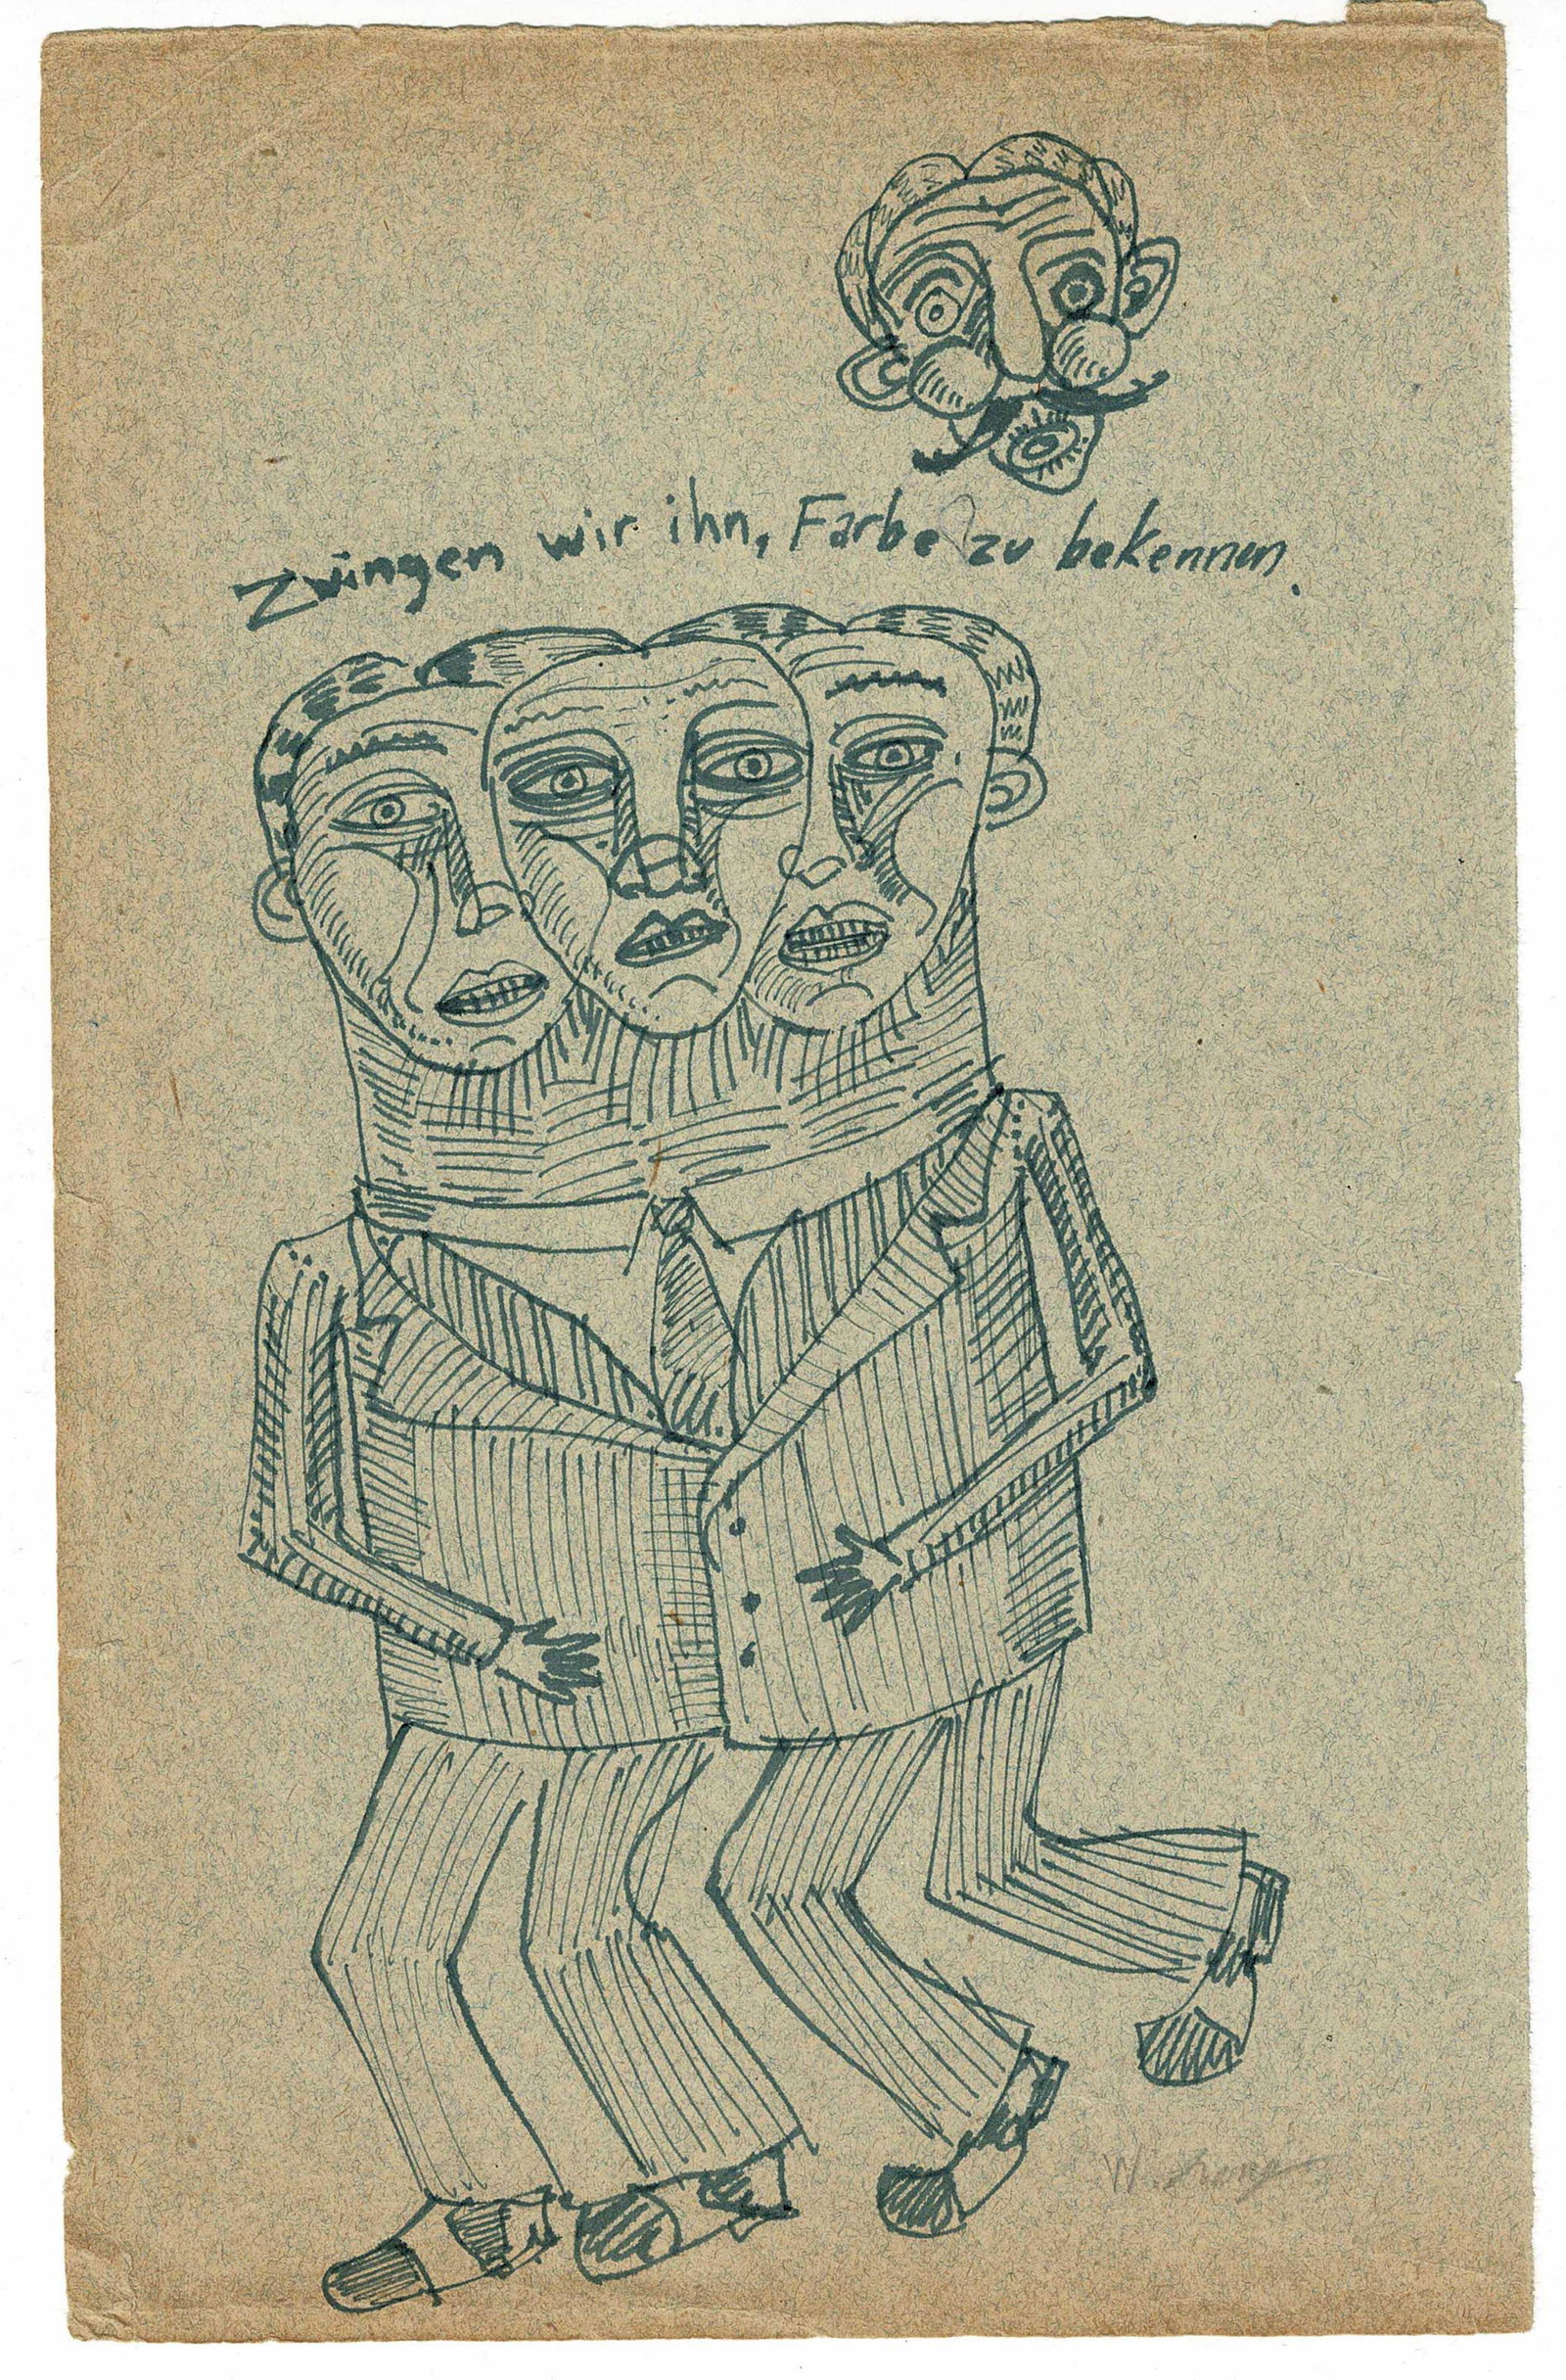 Zwingen wir ihn, Farbe zu bekennen.